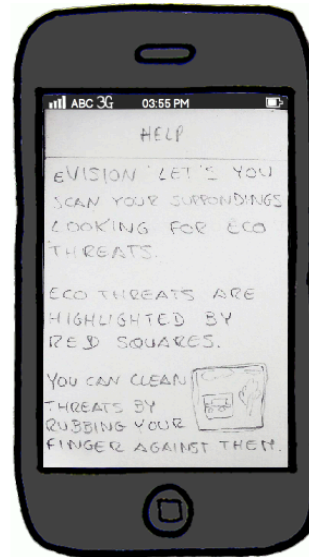 ABC 3G 03:55 PM
HELP
EVISION LET'S YOU
SCAN YOUR SURRONDINGS
LOOKING FOR ECO
THREATS.
ECO THREATS ARE
HIGHLIGHTED BY
RED SQUARES.
YOU CAN CLEAN
THREATS BY
RUBBING YOUR
FINGER AGAINST THEM.